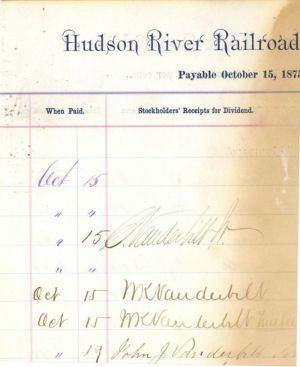 Hudson River Railroad
Payable October 15, 1875
When Paid.
Stockholders' Receipts for Dividend.
Oct 15
" "
" 15 C. Vanderbilt Jr.
" "
Oct 15 WKVanderbilt
Oct 15 WKVanderbilt
" 19 John J Vanderbilt